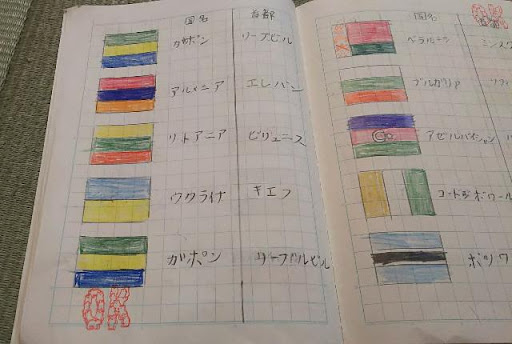 国名 首都
ガボン リーブビル
アルメニア エレバン
リトアニア ビリュニス
ウクライナ キエフ
ガボン リーブルビル
OK
国名
OK
ベラルーシ ミンスク
ブルガリア ソフィ
アゼルバイジャン
コートジボワール
ボツワ